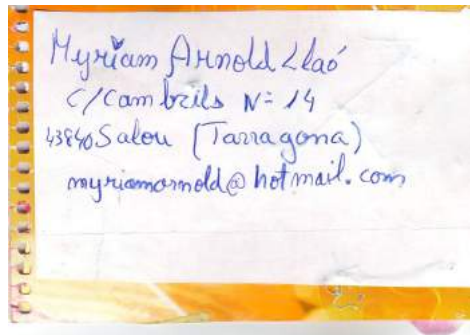 Myriam Arnold Llaó
C/Cambrils Nº 14
43840 Salou (Tarragona)
myriamarnold@hotmail.com